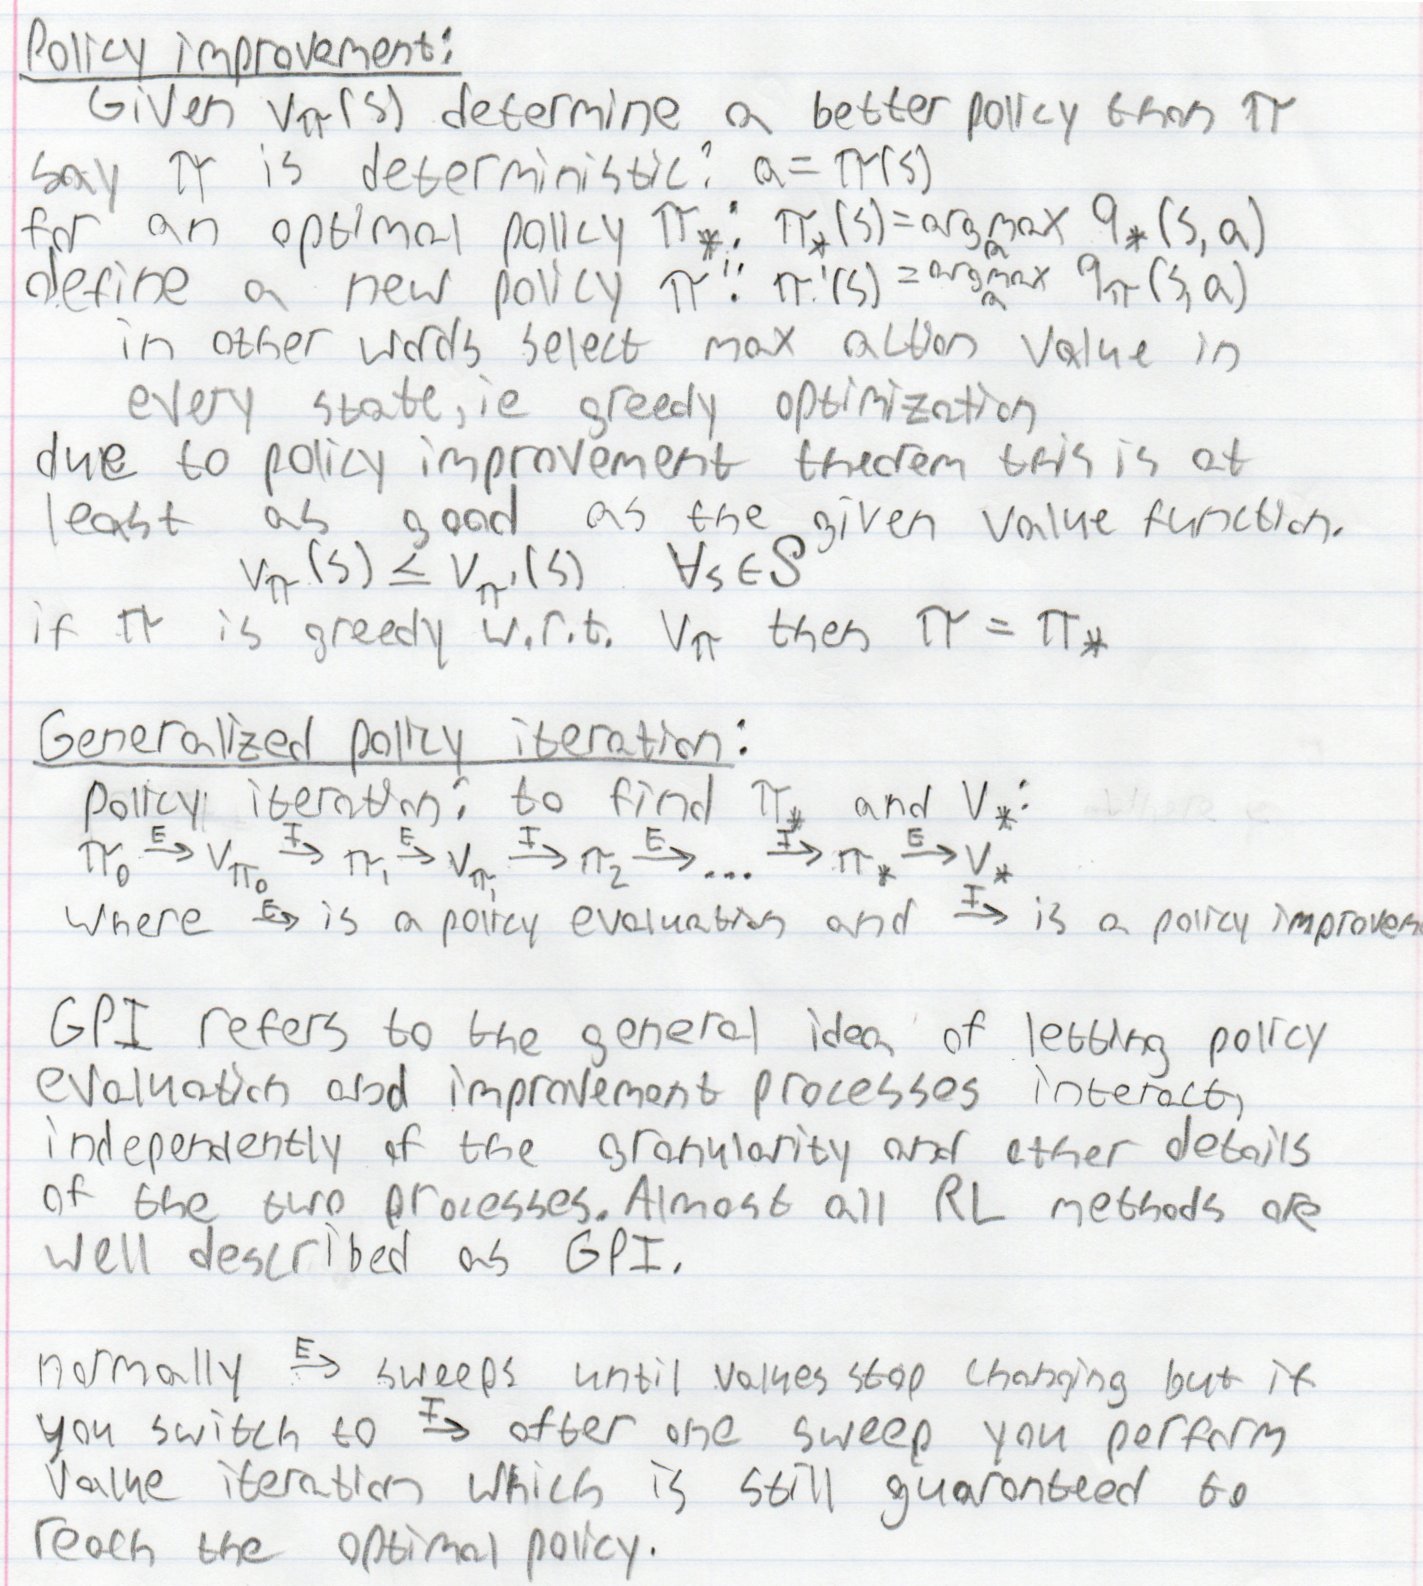 Policy improvement:
Given vπ(s) determine a better policy than π
say π is deterministic: a = π(s)
for an optimal policy π*: π*(s) = argmax_a q*(s, a)
define a new policy π': π'(s) = argmax_a qπ(s, a)
in other words select max action value in
every state, ie greedy optimization
due to policy improvement theorem this is at
least as good as the given value function.
vπ(s) ≤ vπ'(s) ∀s ∈ S
if π is greedy w.r.t. vπ then π = π*
Generalized policy iteration:
Policy iteration: to find π* and v*:
π₀ →ᴱ vπ₀ →ᴵ π₁ →ᴱ vπ₁ →ᴵ π₂ →ᴱ ... →ᴵ π* →ᴱ v*
where →ᴱ is a policy evaluation and →ᴵ is a policy improvem
GPI refers to the general idea of letting policy
evaluation and improvement processes interact,
independently of the granularity and other details
of the two processes. Almost all RL methods are
well described as GPI.
normally →ᴱ sweeps until values stop changing but if
you switch to →ᴵ after one sweep you perform
value iteration which is still guaranteed to
reach the optimal policy.